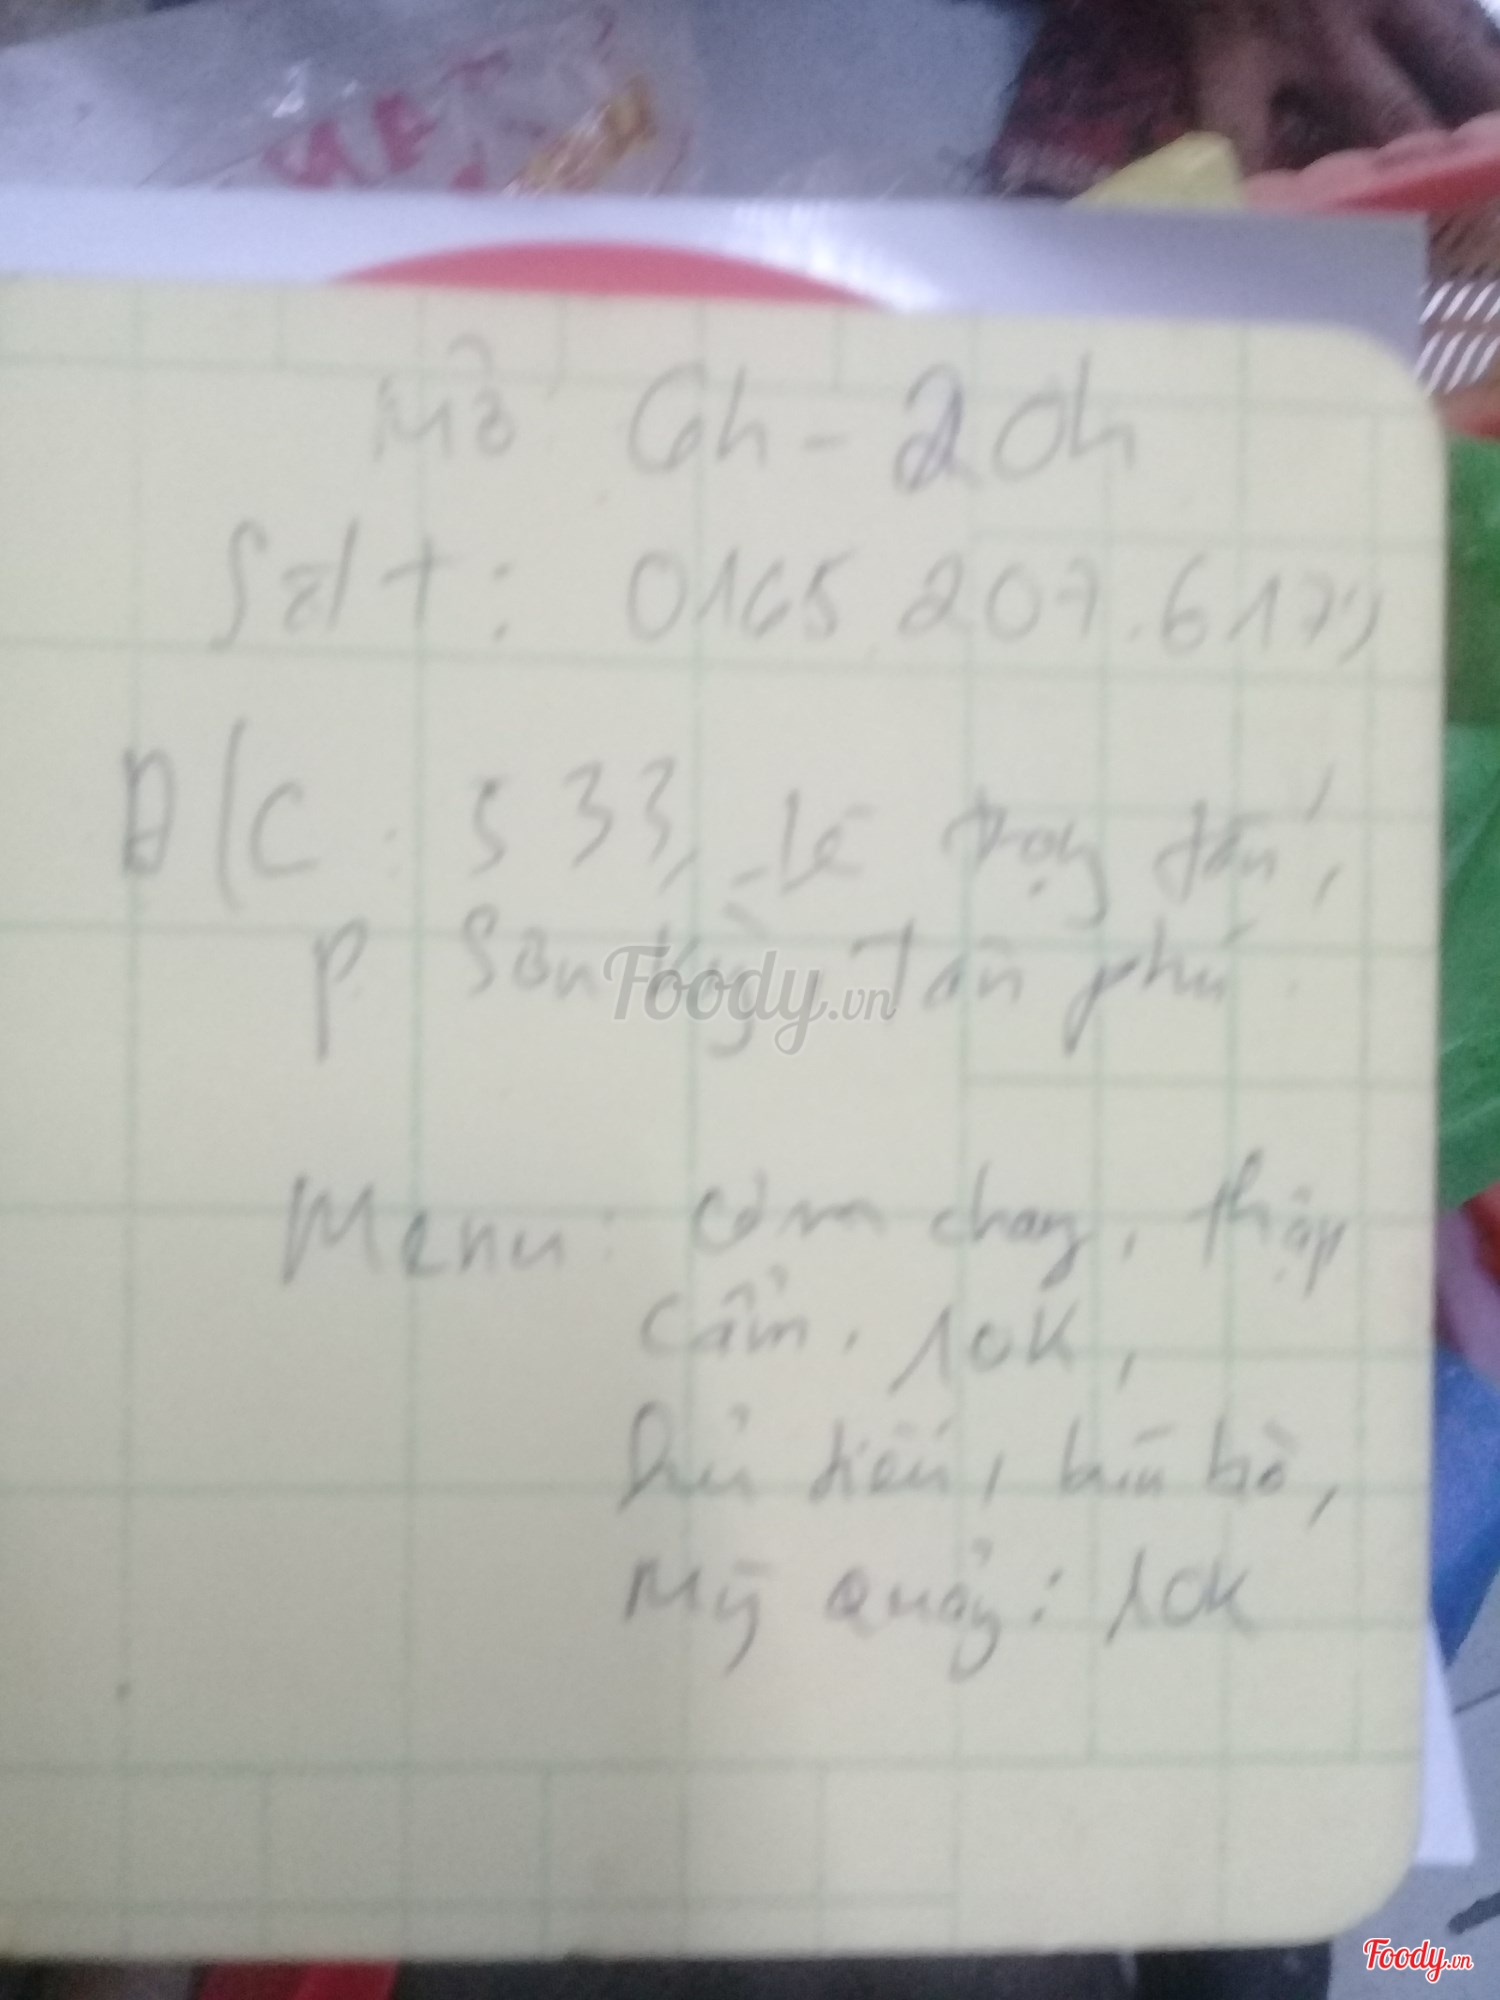 MỞ 6h - 20h
Sđt: 0165.207.617
Đ/C: 533, Lê trọng tấn,
P. Sơn Kỳ, Tân phú.
Foody.vn
Menu: Cơm chay, thập
cẩm. 10K,
Hủ tiếu, bún bò,
Mỳ Quảng: 10K
Foody.vn